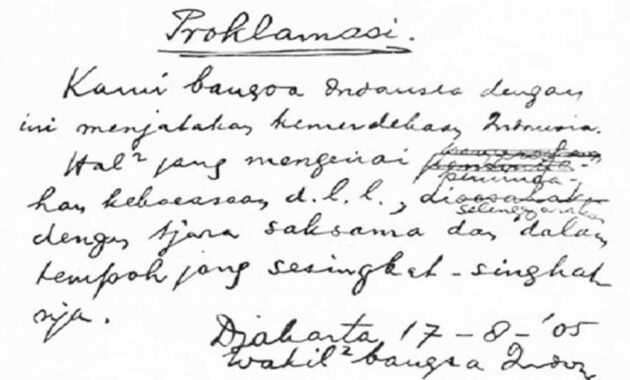 Proklamasi.
Kami bangsa Indonesia dengan
ini menjatakan kemerdekaan Indonesia.
Hal² jang mengenai
peminda-
han kekoeasaan d.l.l.,
diselenggarakan
dengan tjara saksama dan dalam
tempoh jang sesingkat-singkat
nja.
Djakarta 17-8-'05
Wakil² bangsa Indon